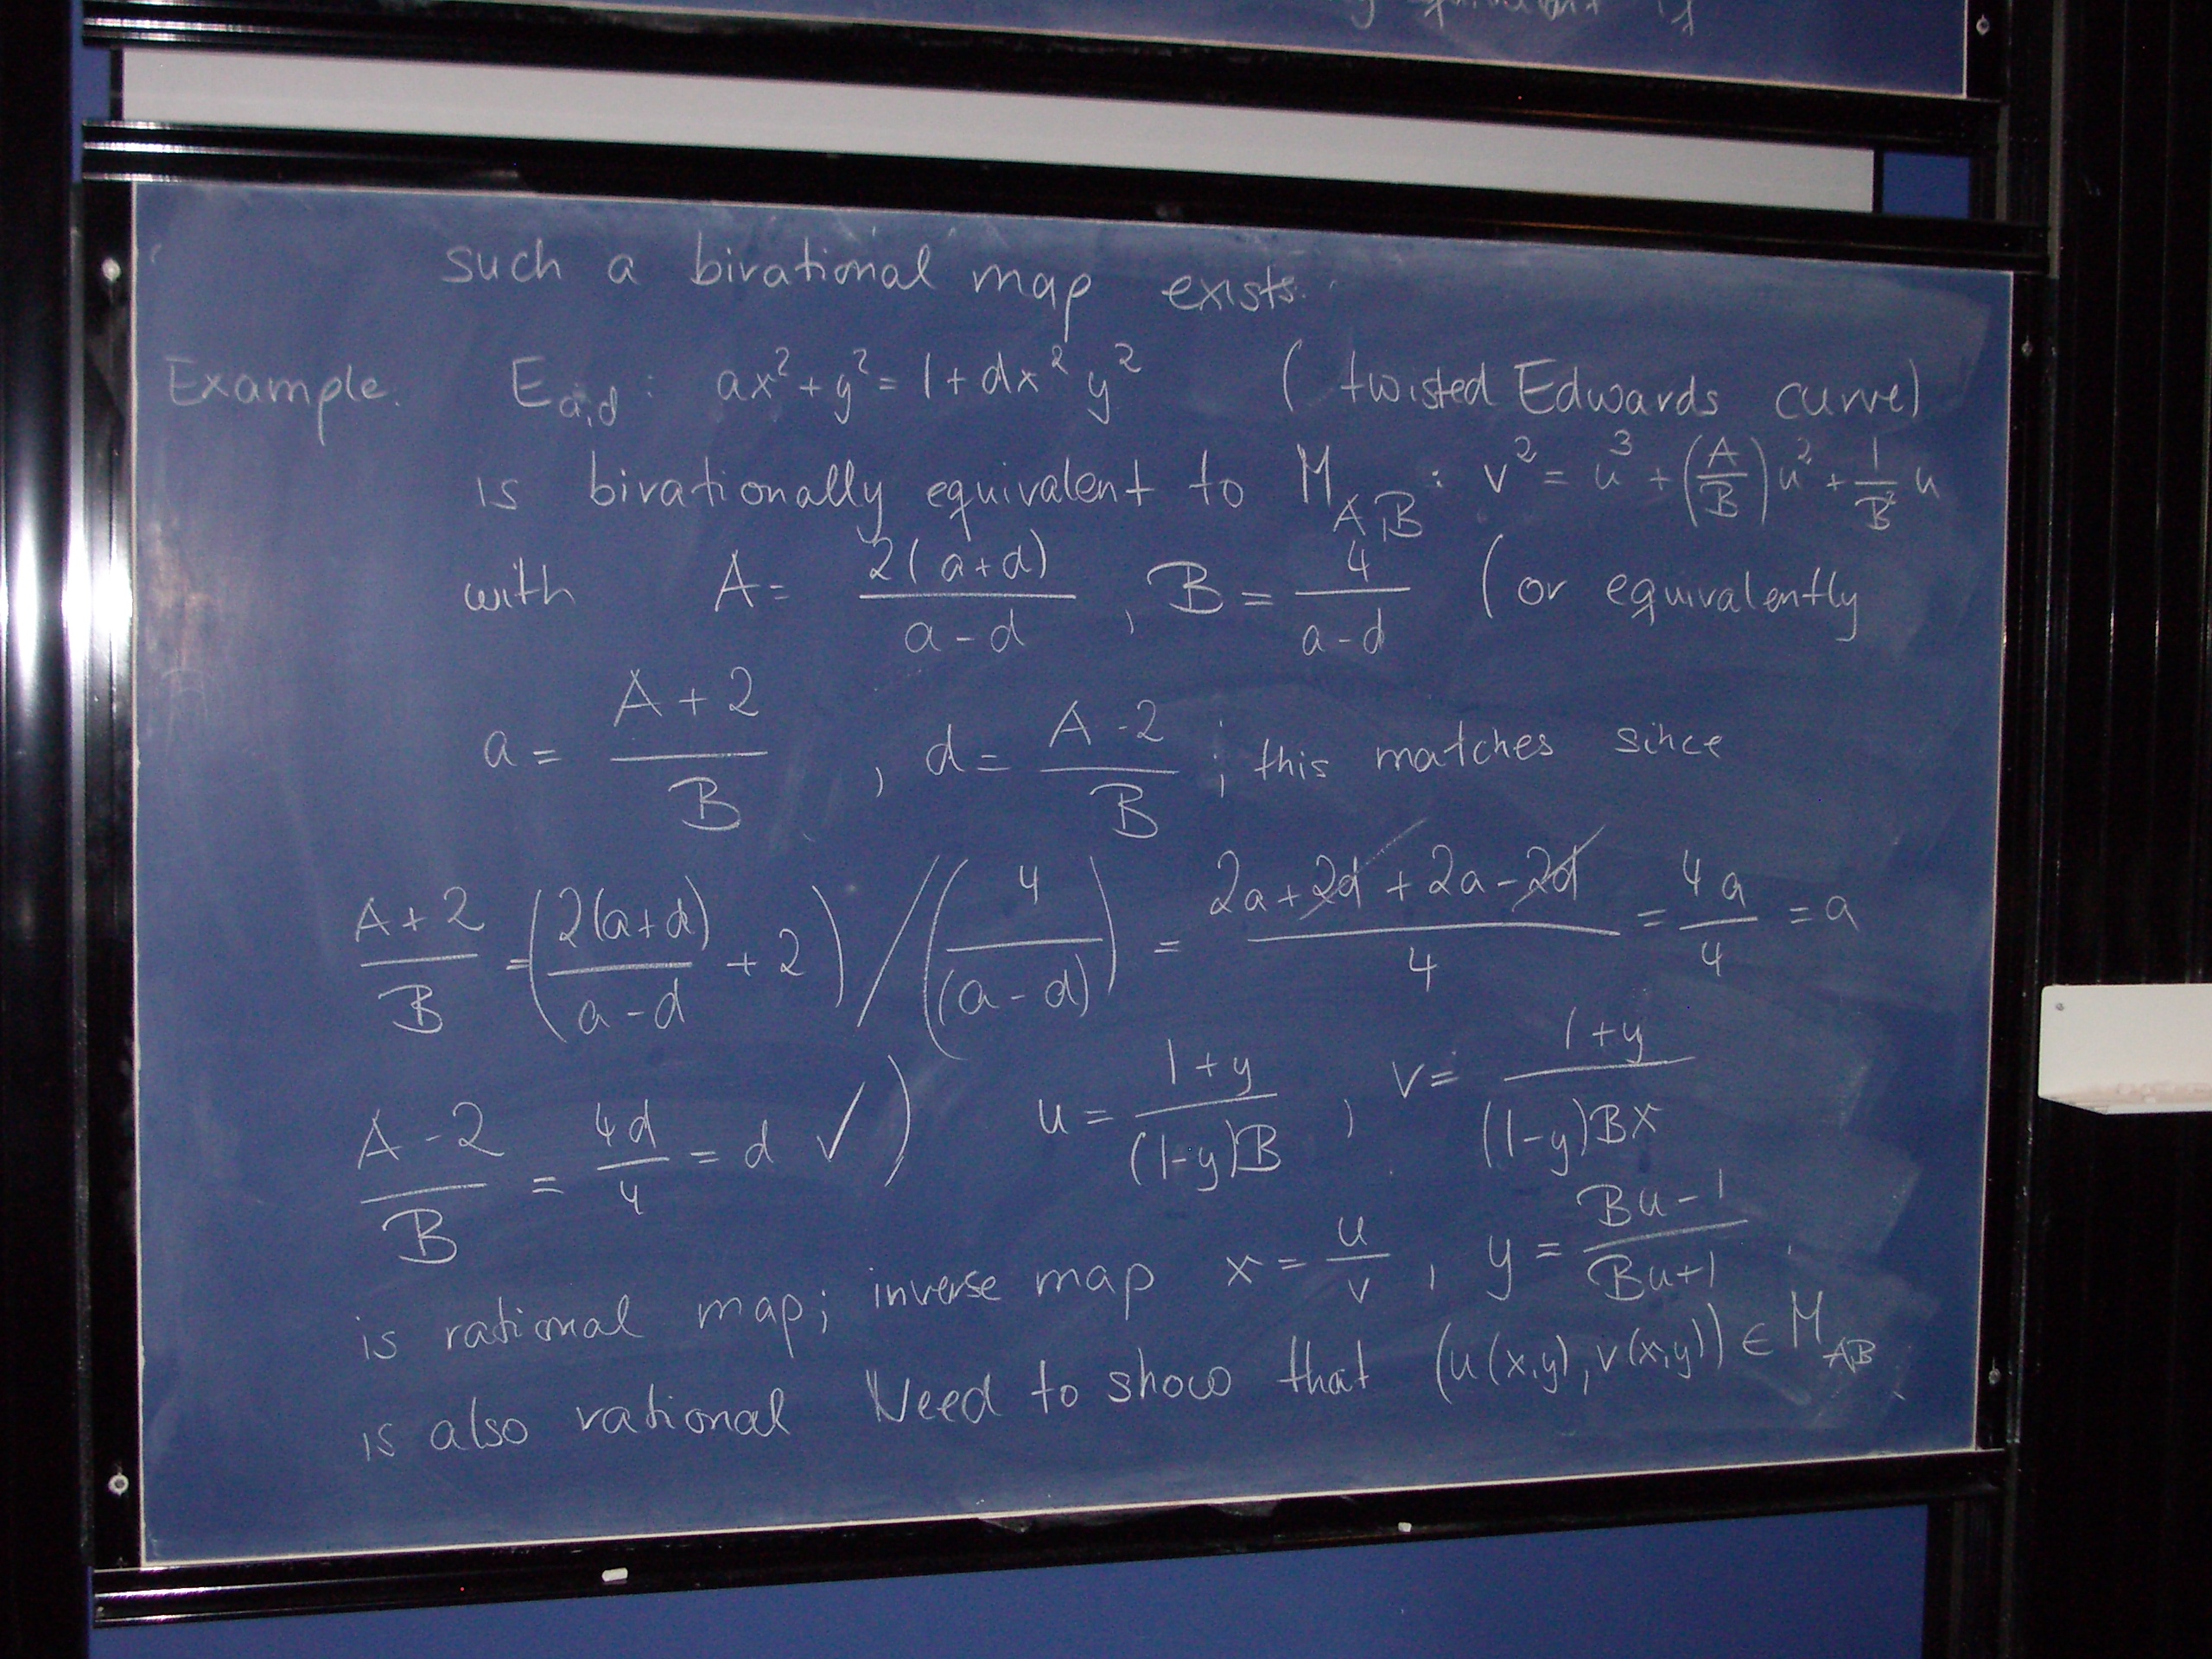 equivalent if
such a birational map exists.
Example. E_{a,d}: ax² + y² = 1 + dx²y² (twisted Edwards curve)
is birationally equivalent to M_{A,B}: v² = u³ + (A/B)u² + 1/B² u
with A = 2(a+d)/(a-d), B = 4/(a-d) (or equivalently
a = (A+2)/B, d = (A-2)/B; this matches since
(A+2)/B = (2(a+d)/(a-d) + 2) / (4/(a-d)) = (2a+2d+2a-2d)/4 = 4a/4 = a
(A-2)/B = 4d/4 = d ✓) u = (1+y)/((1-y)B), v = (1+y)/((1-y)Bx)
is rational map; inverse map x = u/v, y = (Bu-1)/(Bu+1)
is also rational Need to show that (u(x,y), v(x,y)) ∈ M_{A,B}.